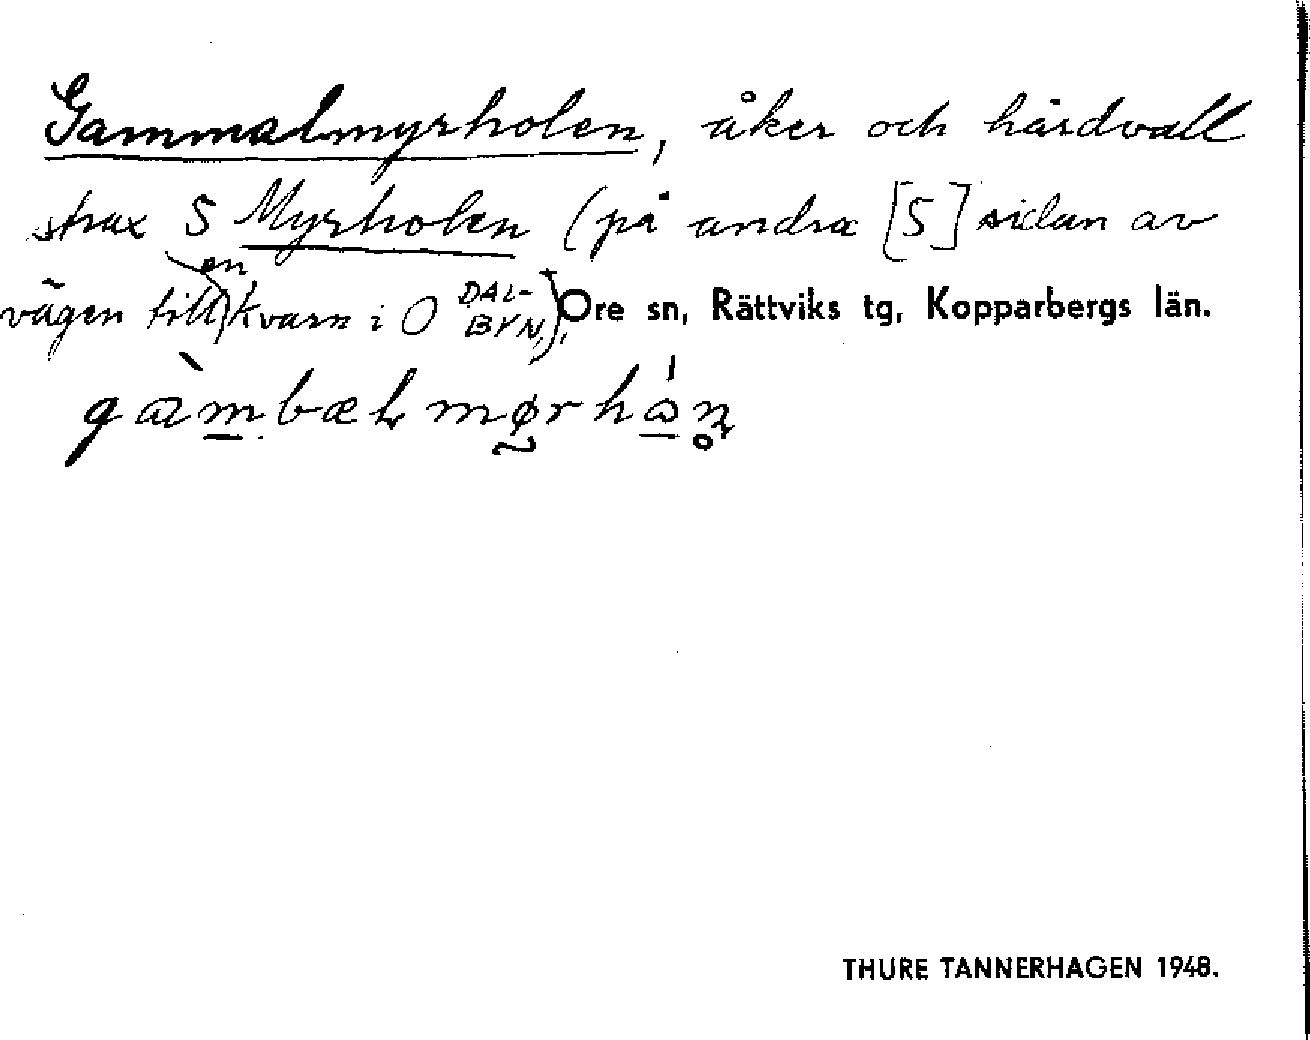 Gammalmyrholen, åker och hårdvall
strax S Myrholen (på andra [S] sidan av
vägen till en kvarn i O DALBYN), Ore sn, Rättviks tg, Kopparbergs län.
THURE TANNERHAGEN 1948.